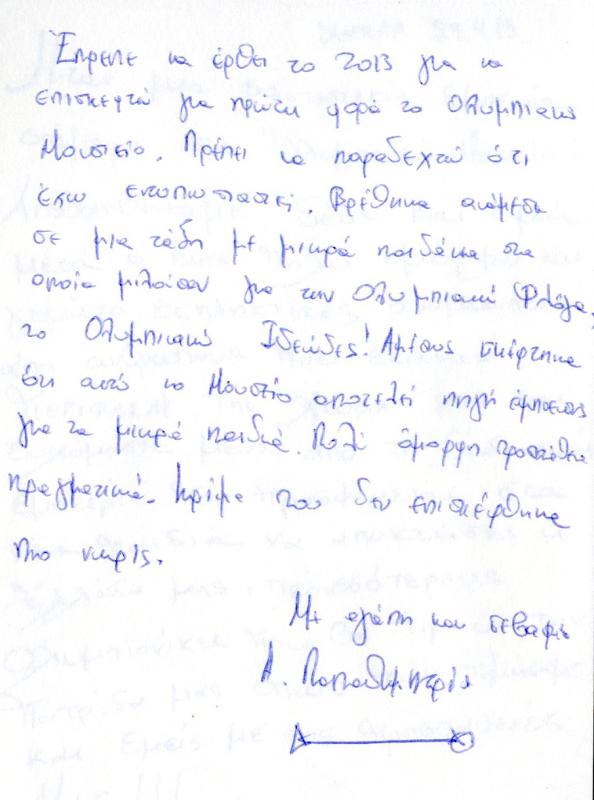 Έπρεπε να έρθει το 2013 για να
επισκεφτώ για πρώτη φορά το Ολυμπιακό
Μουσείο. Πρέπει να παραδεχτώ ότι
έχω εντυπωσιαστεί. Βρέθηκα ανάμεσα
σε μια τάξη με μικρά παιδάκια στα
οποία μιλούσαν για την Ολυμπιακή Φλόγα,
το Ολυμπιακό Ιδεώδες! Αμέσως σκέφτηκα
ότι αυτό το Μουσείο αποτελεί πηγή έμπνευσης
για τα μικρά παιδιά. Πολύ όμορφη προσπάθεια
πραγματικά. Κρίμα που δεν επισκέφθηκα
πιο νωρίς.
Με αγάπη και σεβασμό
Α. Παπαδημητρίου